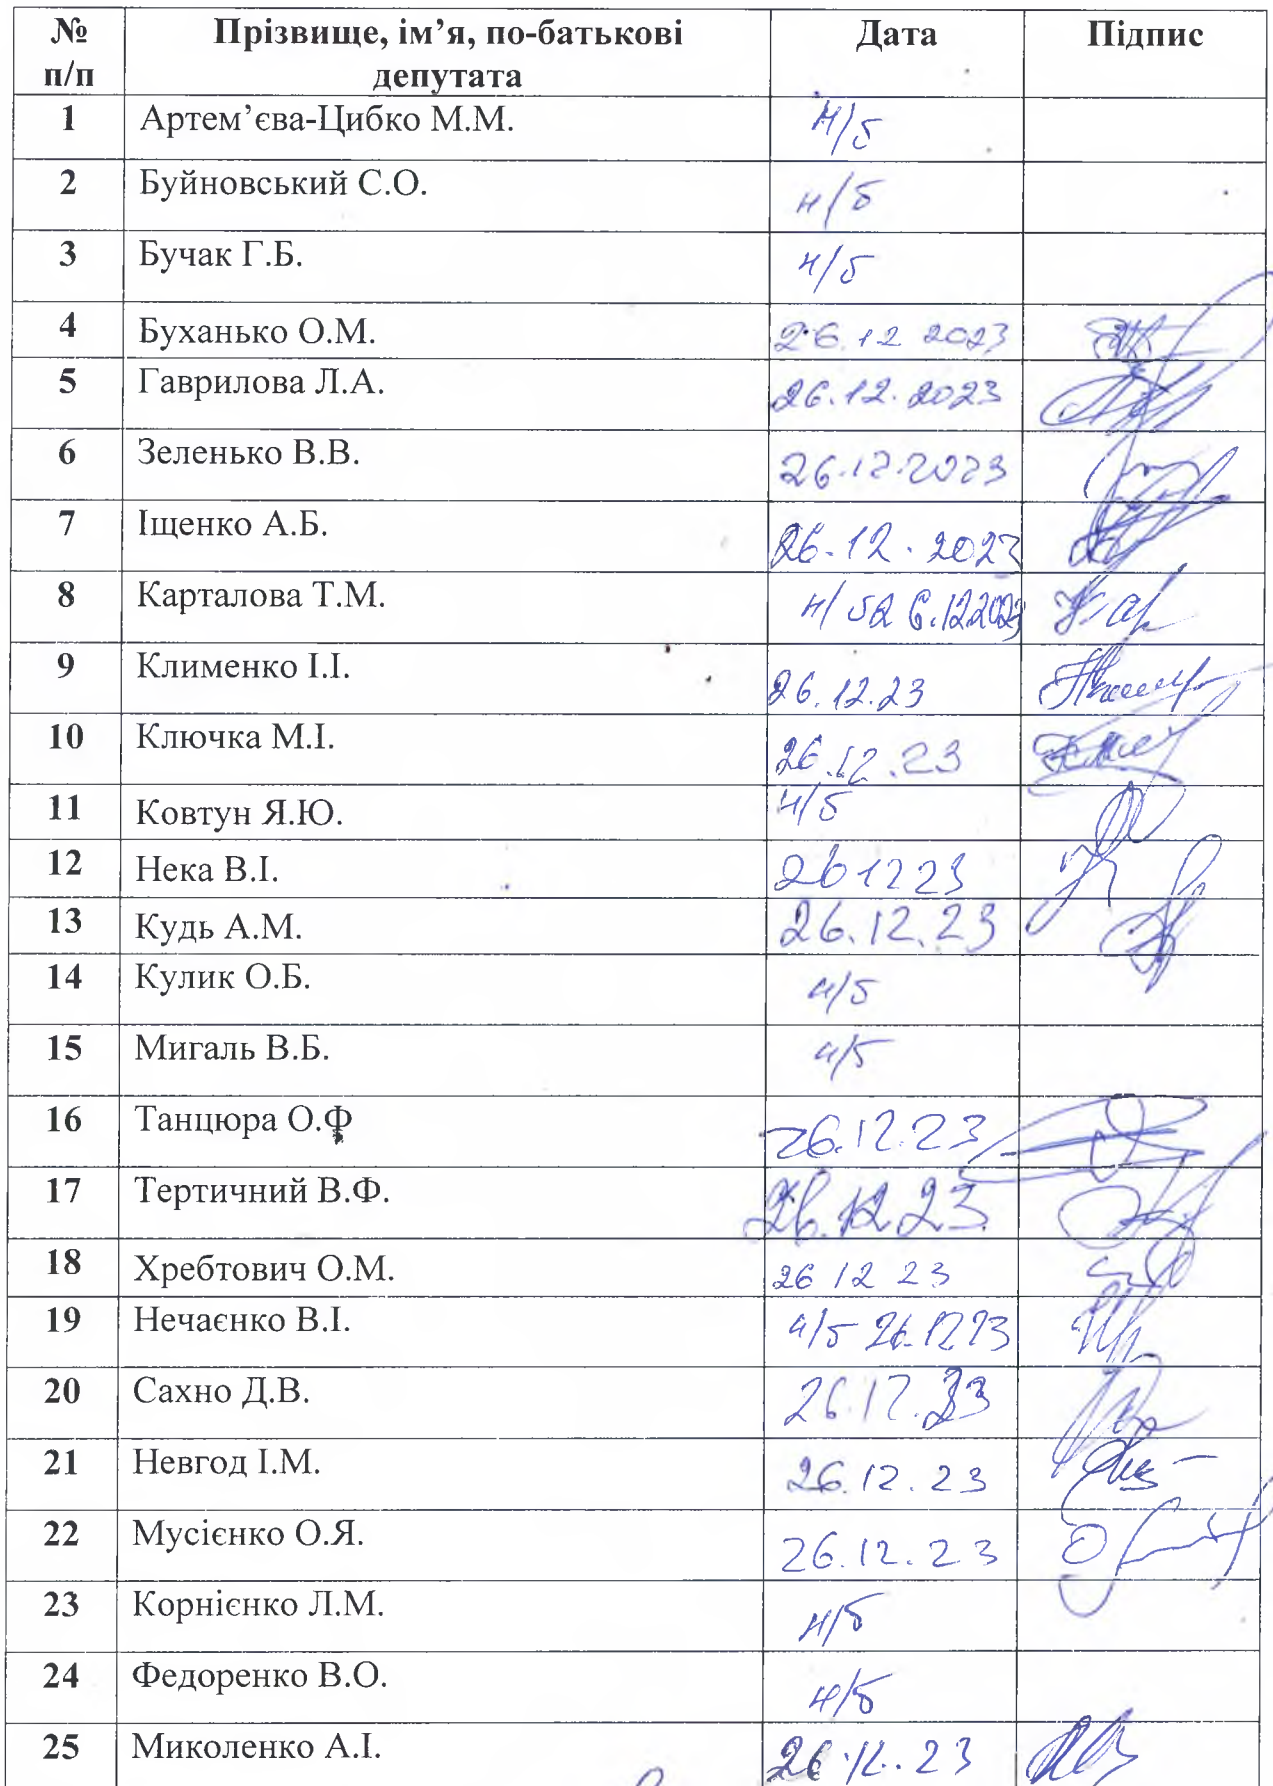 № Прізвище, ім’я, по-батькові Дата Підпис
п/п депутата
1 Артем’єва-Цибко М.М. н/б
2 Буйновський С.О. н/б
3 Бучак Г.Б. н/б
4 Буханько О.М. 26.12 2023
5 Гаврилова Л.А. 26.12.2023
6 Зеленько В.В. 26.12.2023
7 Іщенко А.Б. 26.12.2023
8 Карталова Т.М. н/б 26.12 2023
9 Клименко І.І. 26.12.23
10 Ключка М.І. 26.12.23
11 Ковтун Я.Ю. н/б
12 Нека В.І. 26 12 23
13 Кудь А.М. 26.12.23
14 Кулик О.Б. н/б
15 Мигаль В.Б. н/б
16 Танцюра О.Ф 26.12.23
17 Тертичний В.Ф. 26.12.23
18 Хребтович О.М. 26 12 23
19 Нечаєнко В.І. н/б 26.12 23
20 Сахно Д.В. 26.12.23
21 Невгод І.М. 26.12.23
22 Мусієнко О.Я. 26.12.23
23 Корнієнко Л.М. н/б
24 Федоренко В.О. н/б
25 Миколенко А.І. 26.12.23